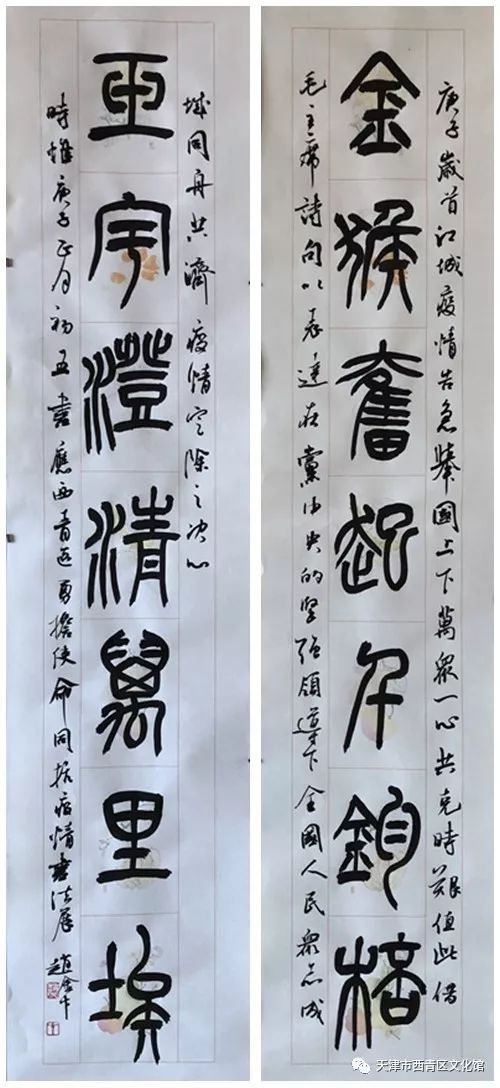 庚子歲首江城疫情告急舉國上下萬眾一心共克時艱值此借
金猴奮起千鈞棓
毛主席詩句以表達在黨中央的堅強領導下全國人民眾志成
城同舟共濟疫情定除之决心
玉宇澄清萬里埃
時惟庚子正月初五書應西青區勇擔使命同抗疫情書法展 趙
天津市西青区文化馆